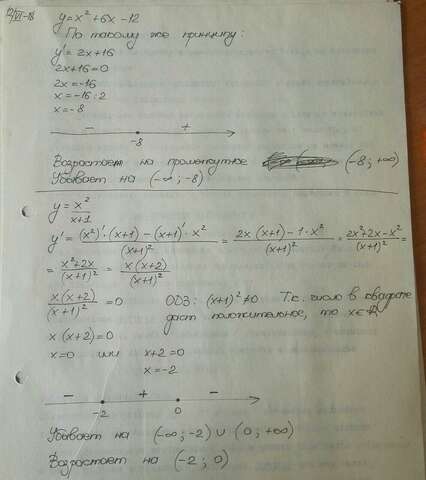 y = x² + 6x - 12
По такому же принципу:
y' = 2x + 16
2x + 16 = 0
2x = -16
x = -16 : 2
x = -8
- +
-8
Возрастает на промежутке (-8; +∞)
Убывает на (-∞; -8)
y = x²/(x+1)
y' = ((x²)' · (x+1) - (x+1)' · x²)/(x+1)² = (2x(x+1) - 1·x²)/(x+1)² = (2x² + 2x - x²)/(x+1)² =
= (x² + 2x)/(x+1)² = x(x+2)/(x+1)²
x(x+2)/(x+1)² = 0 ОДЗ: (x+1)² ≠ 0 Т.к. число в квадрате
даст положительное, то x ∈ R
x(x+2) = 0
x = 0 или x+2 = 0
x = -2
- + -
-2 0
Убывает на (-∞; -2) ∪ (0; +∞)
Возрастает на (-2; 0)